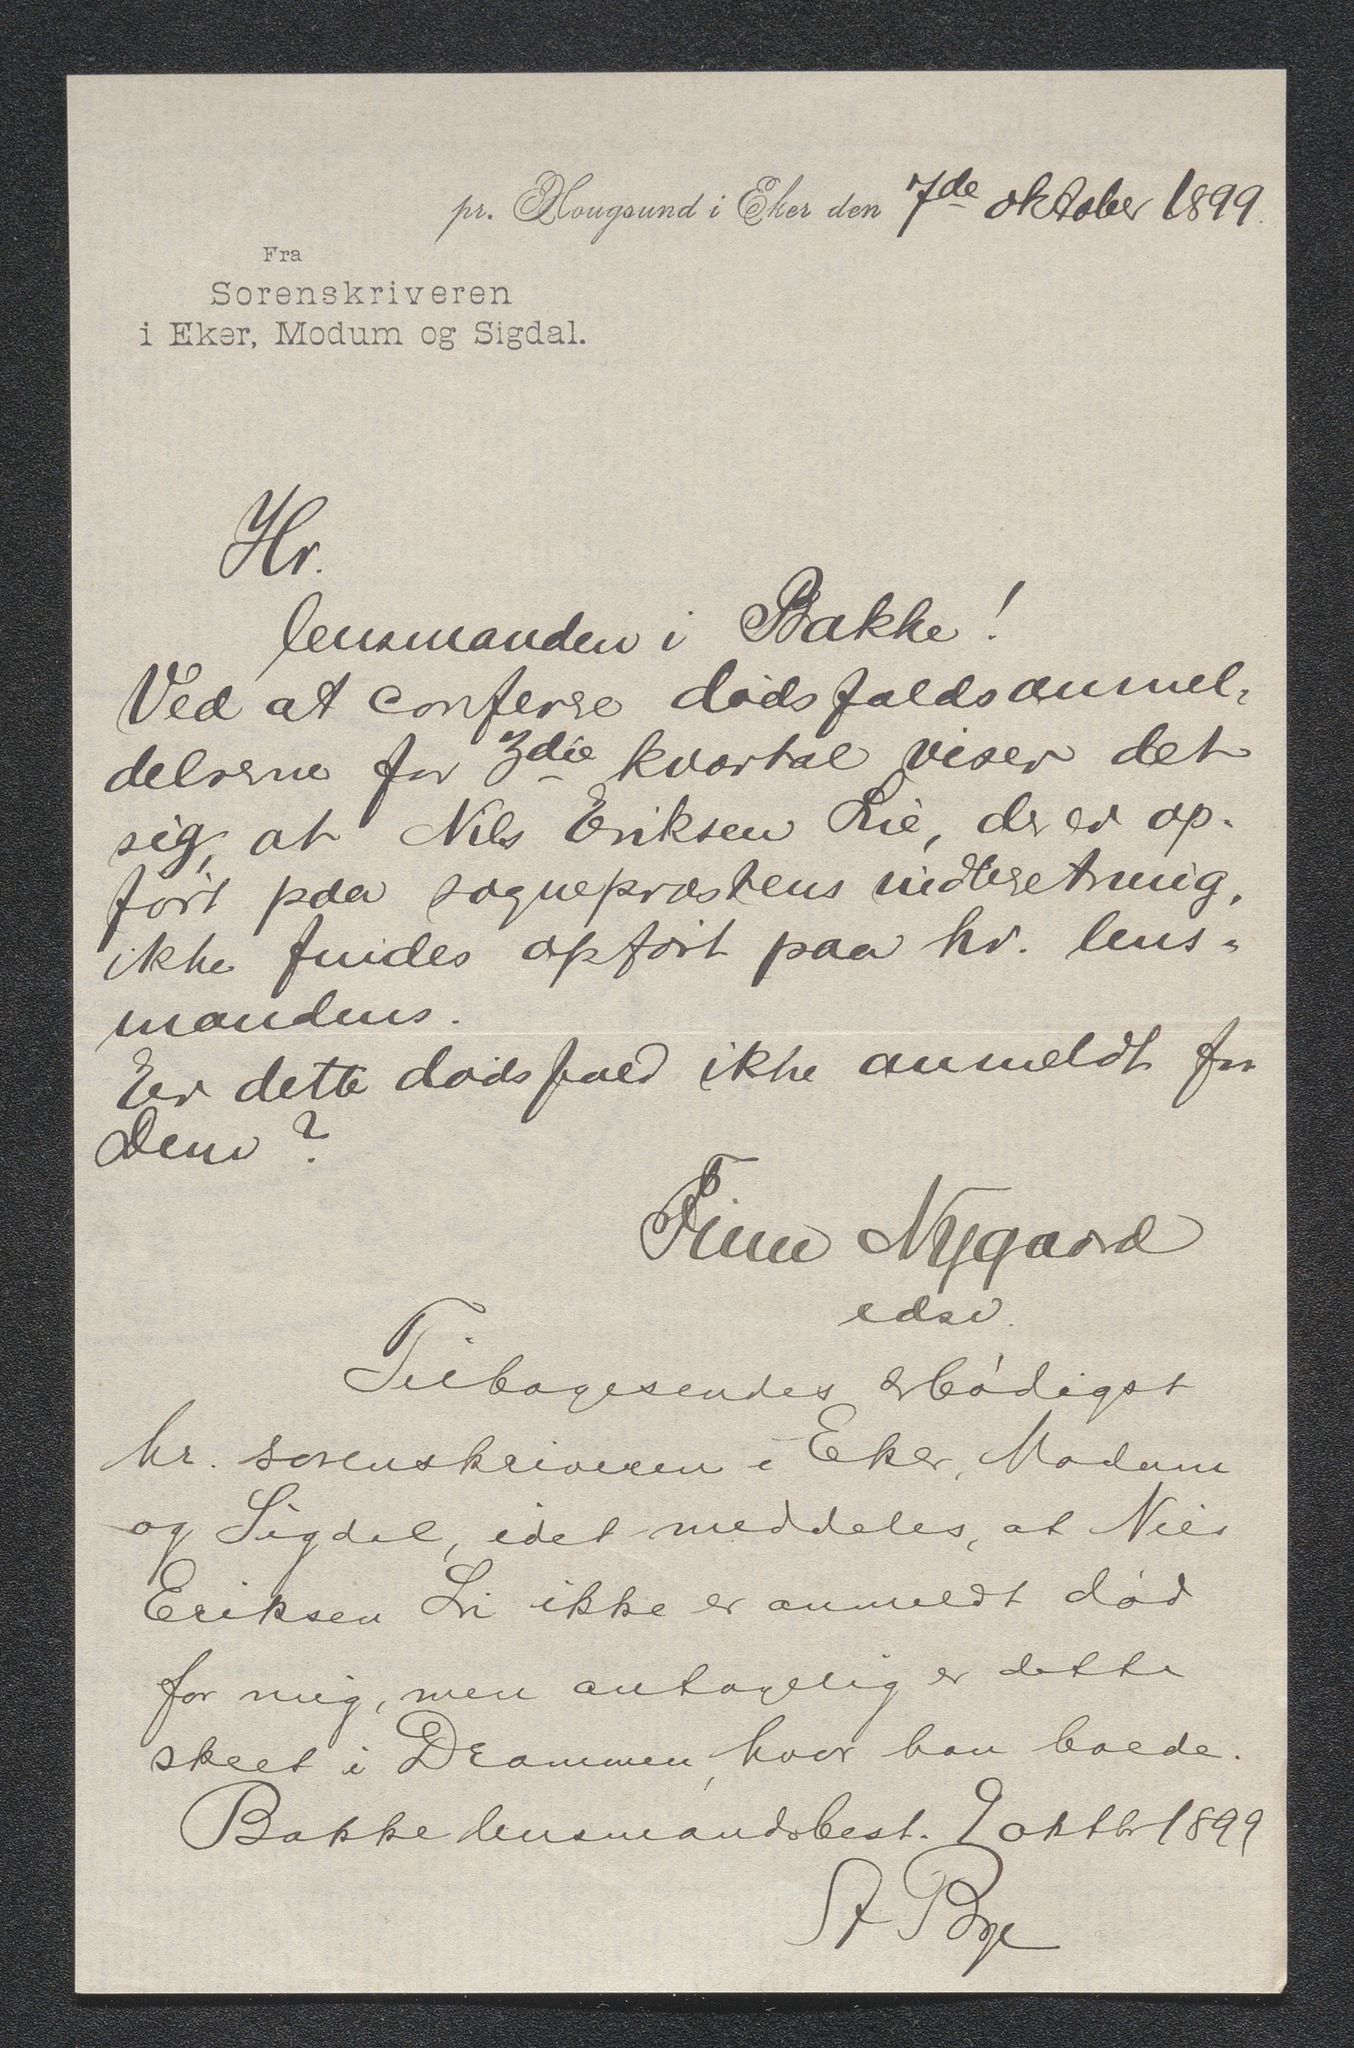 pr. Hougsund i Eker den 7de oktober 1899.
Fra
Sorenskriveren
i Eker, Modum og Sigdal.
Hr.
lensmanden i Bakke!
Ved at conferere dødsfaldsanmel-
delserne for 3die kvartal viser det
sig, at Nils Eriksen Lie, der er op-
ført paa sognepræstens indberetning,
ikke findes opført paa hr. lens-
mandens.
Er dette dødsfald ikke anmeldt for
Dem?
Finn Nygaard
edsv.
Tilbagesendes ærbødigst
hr. sorenskriveren i Eker, Modum
og Sigdal, idet meddeles, at Nils
Eriksen Li ikke er anmeldt død
for mig, men antagelig er dette
skeet i Drammen, hvor han boede.
Bakke lensmandsbest. 9 oktbr 1899
St Bye